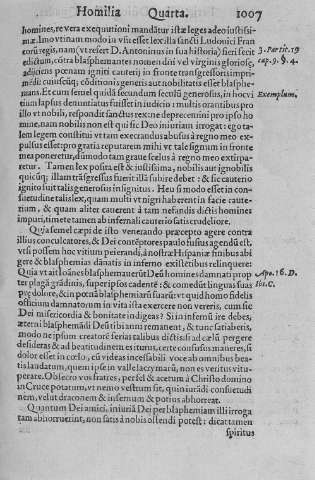 Homilia Quarta. 1007
homines, re vera exequutioni mandātur istæ leges adeo iustissi-
mæ. Imo vtinam modo in vsu esset lex illa sancti Ludouici Fran
corū regis, nam (vt refert D. Antoninus in sua historia) fieri fecit
edictum, cōtra blasphemantes nomen dni vel virginis gloriosæ,
adijciens pœnam igniti cauterij in fronte transgressoris impri-
mēdi cuiuscūq; cōditionis generis aut nobilitatis esset blasphe-
mans. Et cum semel quidā secundum seculū generosus, in hoc vi
tium lapsus denuntiatus fuisset in iudicio: multis orantibus pro
illo vt nobilis, respondit sanctus rex: ne deprecemini pro ipso ho
mine, nam nobilis non est qui sic Deo iniuriam irrogat: ego ta-
lem legem constitui vt tam execrandus abusus à regno meo ex-
pulsus esset: pro gratia reputarem mihi vt tale signum in fronte
mea poneretur, dūmodo tam graue scelus à regno meo extirpa-
retur. Tamen lex posita est & iustissima, nobilis aut ignobilis
quicūq; illam trāsgressus fuerit illā subire debet: & sic cauterio
ignito fuit talis generosus insignitus. Heu si modo esset in con-
suetudine talis lex, quam multi vt nigri haberent in facie caute-
rium, & quam aliter cauerent à tam nefandis dictis homines
impuri, timete tamen ab infernali cauterio satis crudeliore.
Quia semel cæpi de isto venerando præcepto agere contra
illius conculcatores, & Dei contēptores paulo fusius agendū est,
vt si possem hoc vitium peierandi, à nostræ Hispaniæ finibus abi
gere & blasphemias dānatis in inferno existētibus relinquere:
Quia vt ait Ioānes blasphemauerūt Deū homines damnati prop
ter plagā grādinis, super ipsos cadentē: & comedūt linguas suas
pre dolore, & in pœnā blasphemiarū suarū: vt quid homo fidelis
officium damnatorum in vita ista exercere non vereris, cum sic
Dei misericordia & bonitate indigeas? Si in infernū ire debes,
æterni blasphemādi Deū tibi anni remanent, & tunc satiaberis,
modo ne ipsum creatorē ferias talibus dictis: si ad cælū pergere
desideras & ad beatitudinem es iturus, certe confusus maneres, si
dolor esset in cœlo, cū videas incessabili voce ab omnibus bea-
tis laudatum, quem ipse in valle lacrymarū, non es veritus vitu-
perare. Obsecro vos fratres, per fel & acetum à Christo domino
in Cruce potatum, vt nemo vestrum sit, quin iurādi consuetudi
nem, velut draconem & infernum & potius abhorreat.
Quantum Dei amici, iniuriā Dei per blasphemiam illi irroga
tam abhorruerint, non satis à nobis ostendi potest: dicat tamen
spiritus
3. Partic. 19
cap. 9. §. 4.
Exemplum.
Apo. 16. D.